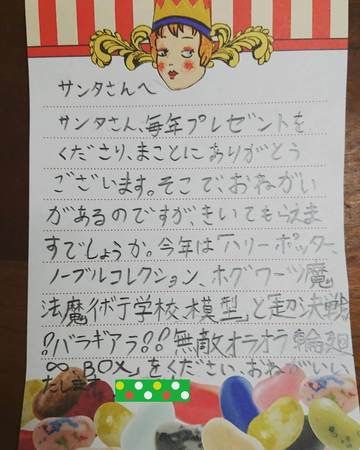 サンタさんへ
サンタさん、毎年プレゼントを
くださり、まことにありがとう
ございます。そこで、おねがい
があるのですが、きいてもらえま
すでしょうか。今年は「ハリーポッター、
ノーブルコレクション、ホグワーツ魔
法魔術学校模型」と「超決戦
!バラギアラ!!無敵オラオラ輪廻
∞BOX」をください。おねがいい
たします。